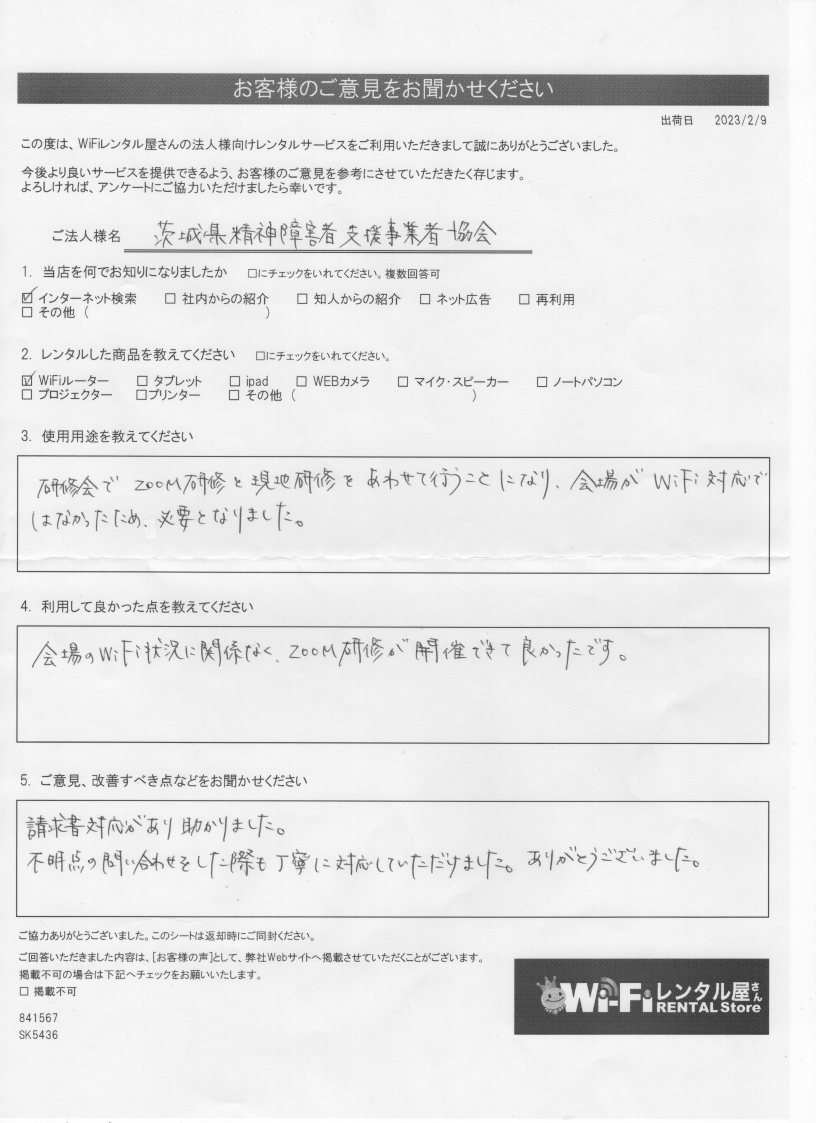 お客様のご意見をお聞かせください
出荷日 2023/2/9
この度は、WiFiレンタル屋さんの法人様向けレンタルサービスをご利用いただきまして誠にありがとうございました。
今後より良いサービスを提供できるよう、お客様のご意見を参考にさせていただきたく存じます。
よろしければ、アンケートにご協力いただけましたら幸いです。
ご法人様名 茨城県精神障害者支援事業者協会
1. 当店を何でお知りになりましたか □にチェックをいれてください。複数回答可
☑ インターネット検索 □ 社内からの紹介 □ 知人からの紹介 □ ネット広告 □ 再利用
□ その他 ( )
2. レンタルした商品を教えてください □にチェックをいれてください。
☑ WiFiルーター □ タブレット □ ipad □ WEBカメラ □ マイク・スピーカー □ ノートパソコン
□ プロジェクター □プリンター □ その他 ( )
3. 使用用途を教えてください
研修会で ZOOM研修と現地研修をあわせて行うことになり、会場がWiFi対応で
はなかったため、必要となりました。
4. 利用して良かった点を教えてください
会場のWiFi状況に関係なく、ZOOM研修が開催できて良かったです。
5. ご意見、改善すべき点などをお聞かせください
請求書対応があり助かりました。
不明点の問い合わせをした際も丁寧に対応していただけました。ありがとうございました。
ご協力ありがとうございました。このシートは返却時にご同封ください。
ご回答いただきました内容は、[お客様の声]として、弊社Webサイトへ掲載させていただくことがございます。
掲載不可の場合は下記へチェックをお願いいたします。
□ 掲載不可
841567
SK5436
Wi-Fiレンタル屋さん
RENTAL Store